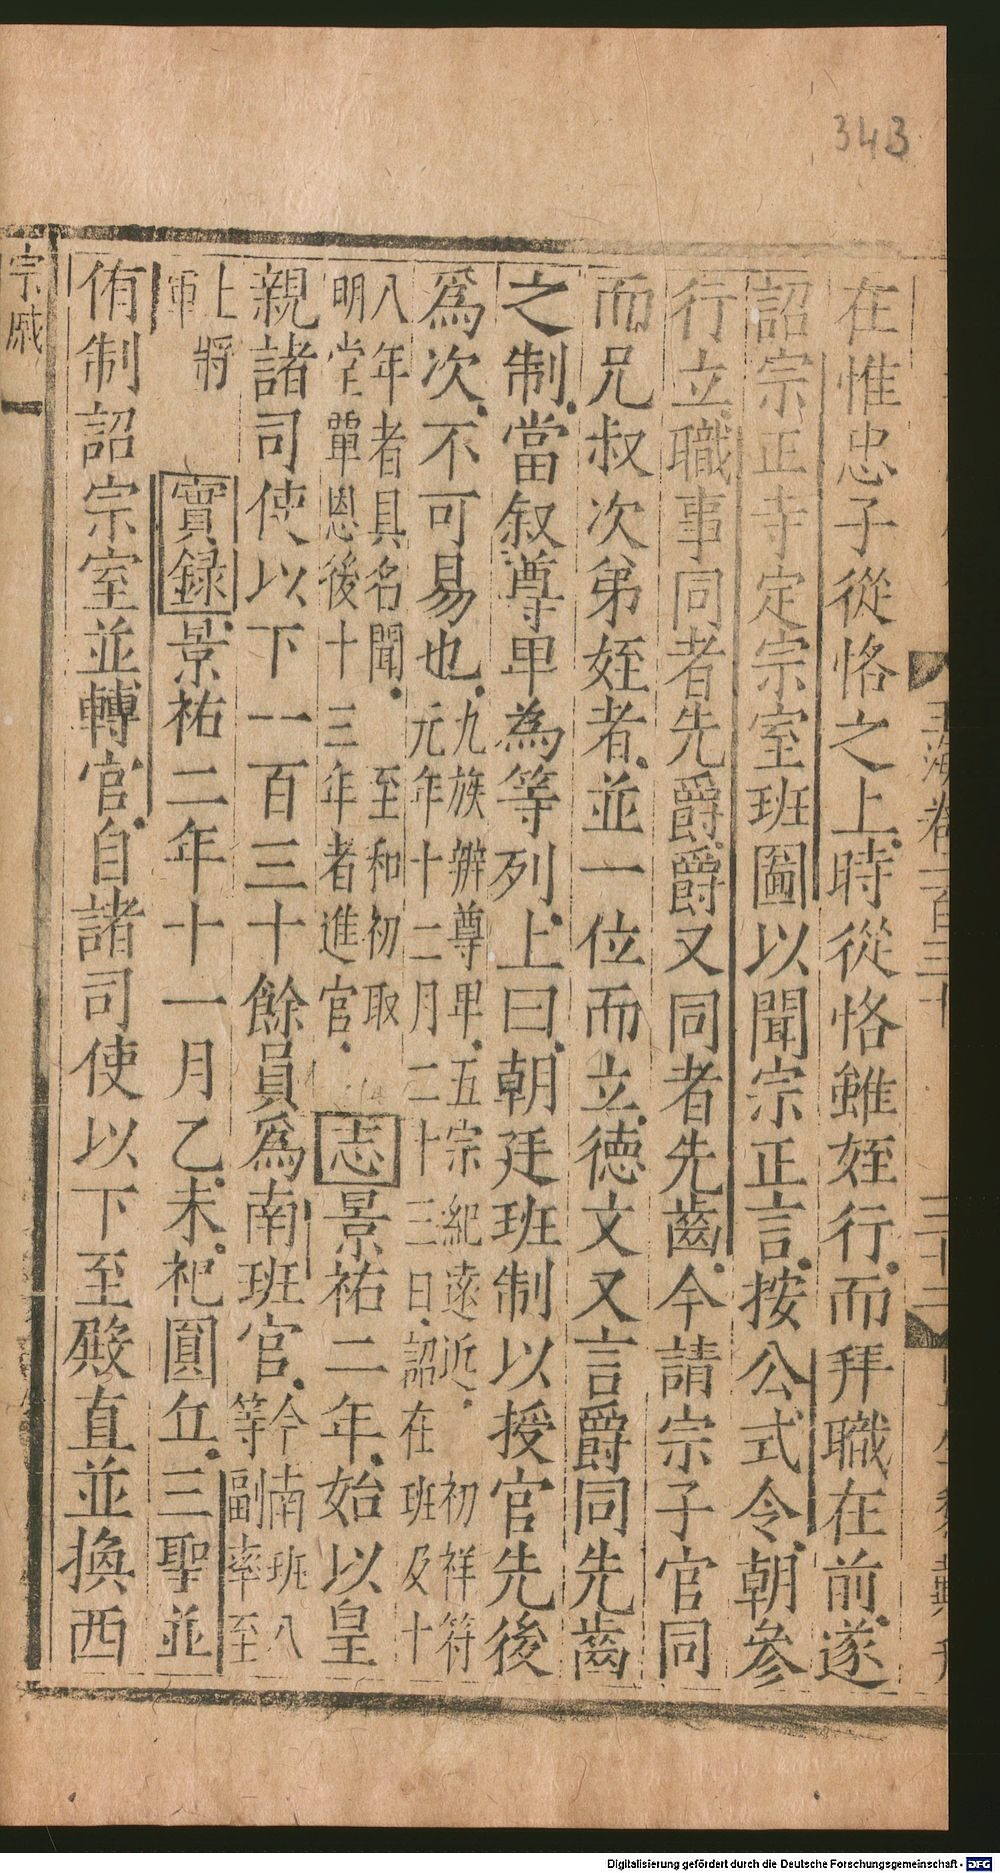 343
玉海卷一百三十
在惟忠子從恪之上時從恪雖姪行而拜職在前遂
詔宗正寺定宗室班圖以聞宗正言按公式令朝參
行立職事同者先爵爵又同者先齒今請宗子官同
而兄叔次弟姪者並一位而立德文又言爵同先齒
之制當叙尊卑為等列上曰朝廷班制以授官先後
爲次不可易也
九族辨尊卑五宗紀遠近 初祥符
元年十二月二十三日詔在班及十
八年者具名聞 至和初取
明堂單恩後十三年者進官
志景祐二年始以皇
親諸司使以下一百三十餘員爲南班官
今南班八
等副率至
上將
軍
實録景祐二年十一月乙未祀圓丘三聖並
侑制詔宗室並轉官自諸司使以下至殿直並換西
宗戚
Digitalisierung gefördert durch die Deutsche Forschungsgemeinschaft - DFG